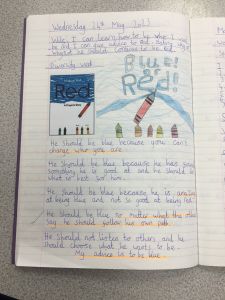 Wednesday 24th May 2023
Wilf: I can learn how to be who I want to
be and I can give advice to Red.
whether he should continue to be Red
Diversity Week
Red
Blue!
&
Red!
He should be blue because you can't
change who you are.
He should be blue because he has
something he is good at and he should do
what is best for him.
He should be blue because he is amazing
at being blue and is not good at being red.
He should be blue no matter what the other
say he should follow his own path.
He should not listen to others and he
should choose what he wants to be.
My advice is to be blue.